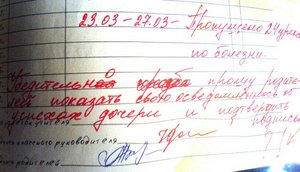 23.03 - 27.03 - Пропущено 24 урока
по болезни.
Убедительно прошу родите-
лей показать свою осведомленность об
успехах дочери и подтвердить
подписью
классного руководителя
родителей